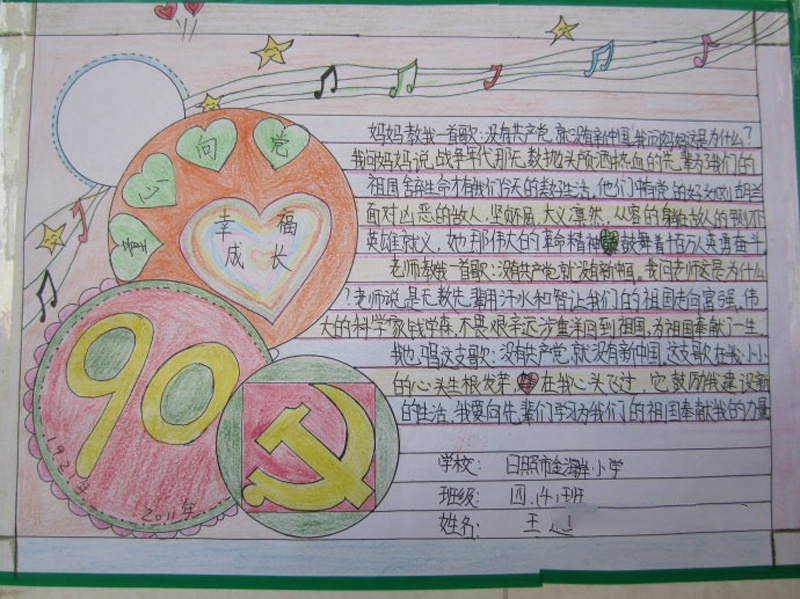 童心向党
幸福
成长
90
1921年
2011年
妈妈教我一首歌:没有共产党,就没有新中国。我问妈妈这是为什么?
我问妈妈说,战争年代那无数抛头颅洒热血的先辈为了我们的
祖国 生命才有我们今天的 生活。他们中有党的好女刘胡兰
面对凶恶的敌人,坚 不屈,大义凛然,从容的 敌人的
英雄就义,她那伟大的革命精神 鼓舞着千百万人英勇奋斗
老师教我一首歌:没有共产党就没有新中国。我问老师这是为什么
?老师说是无数先辈用汗水和智 让我们的祖国走向富强,伟
大的科学家钱学森,不畏艰辛远涉重洋回到祖国,为祖国奉献了一生。
我也唱这支歌:没有共产党,就没有新中国,这支歌在我小小
的心头生根发芽, 在我心头飞过,它鼓励我建设新
的生活,我要向先辈们学习为我们的祖国奉献我的力量
学校: 日照市金海岸小学
班级: 四.(4).班
姓名: 王